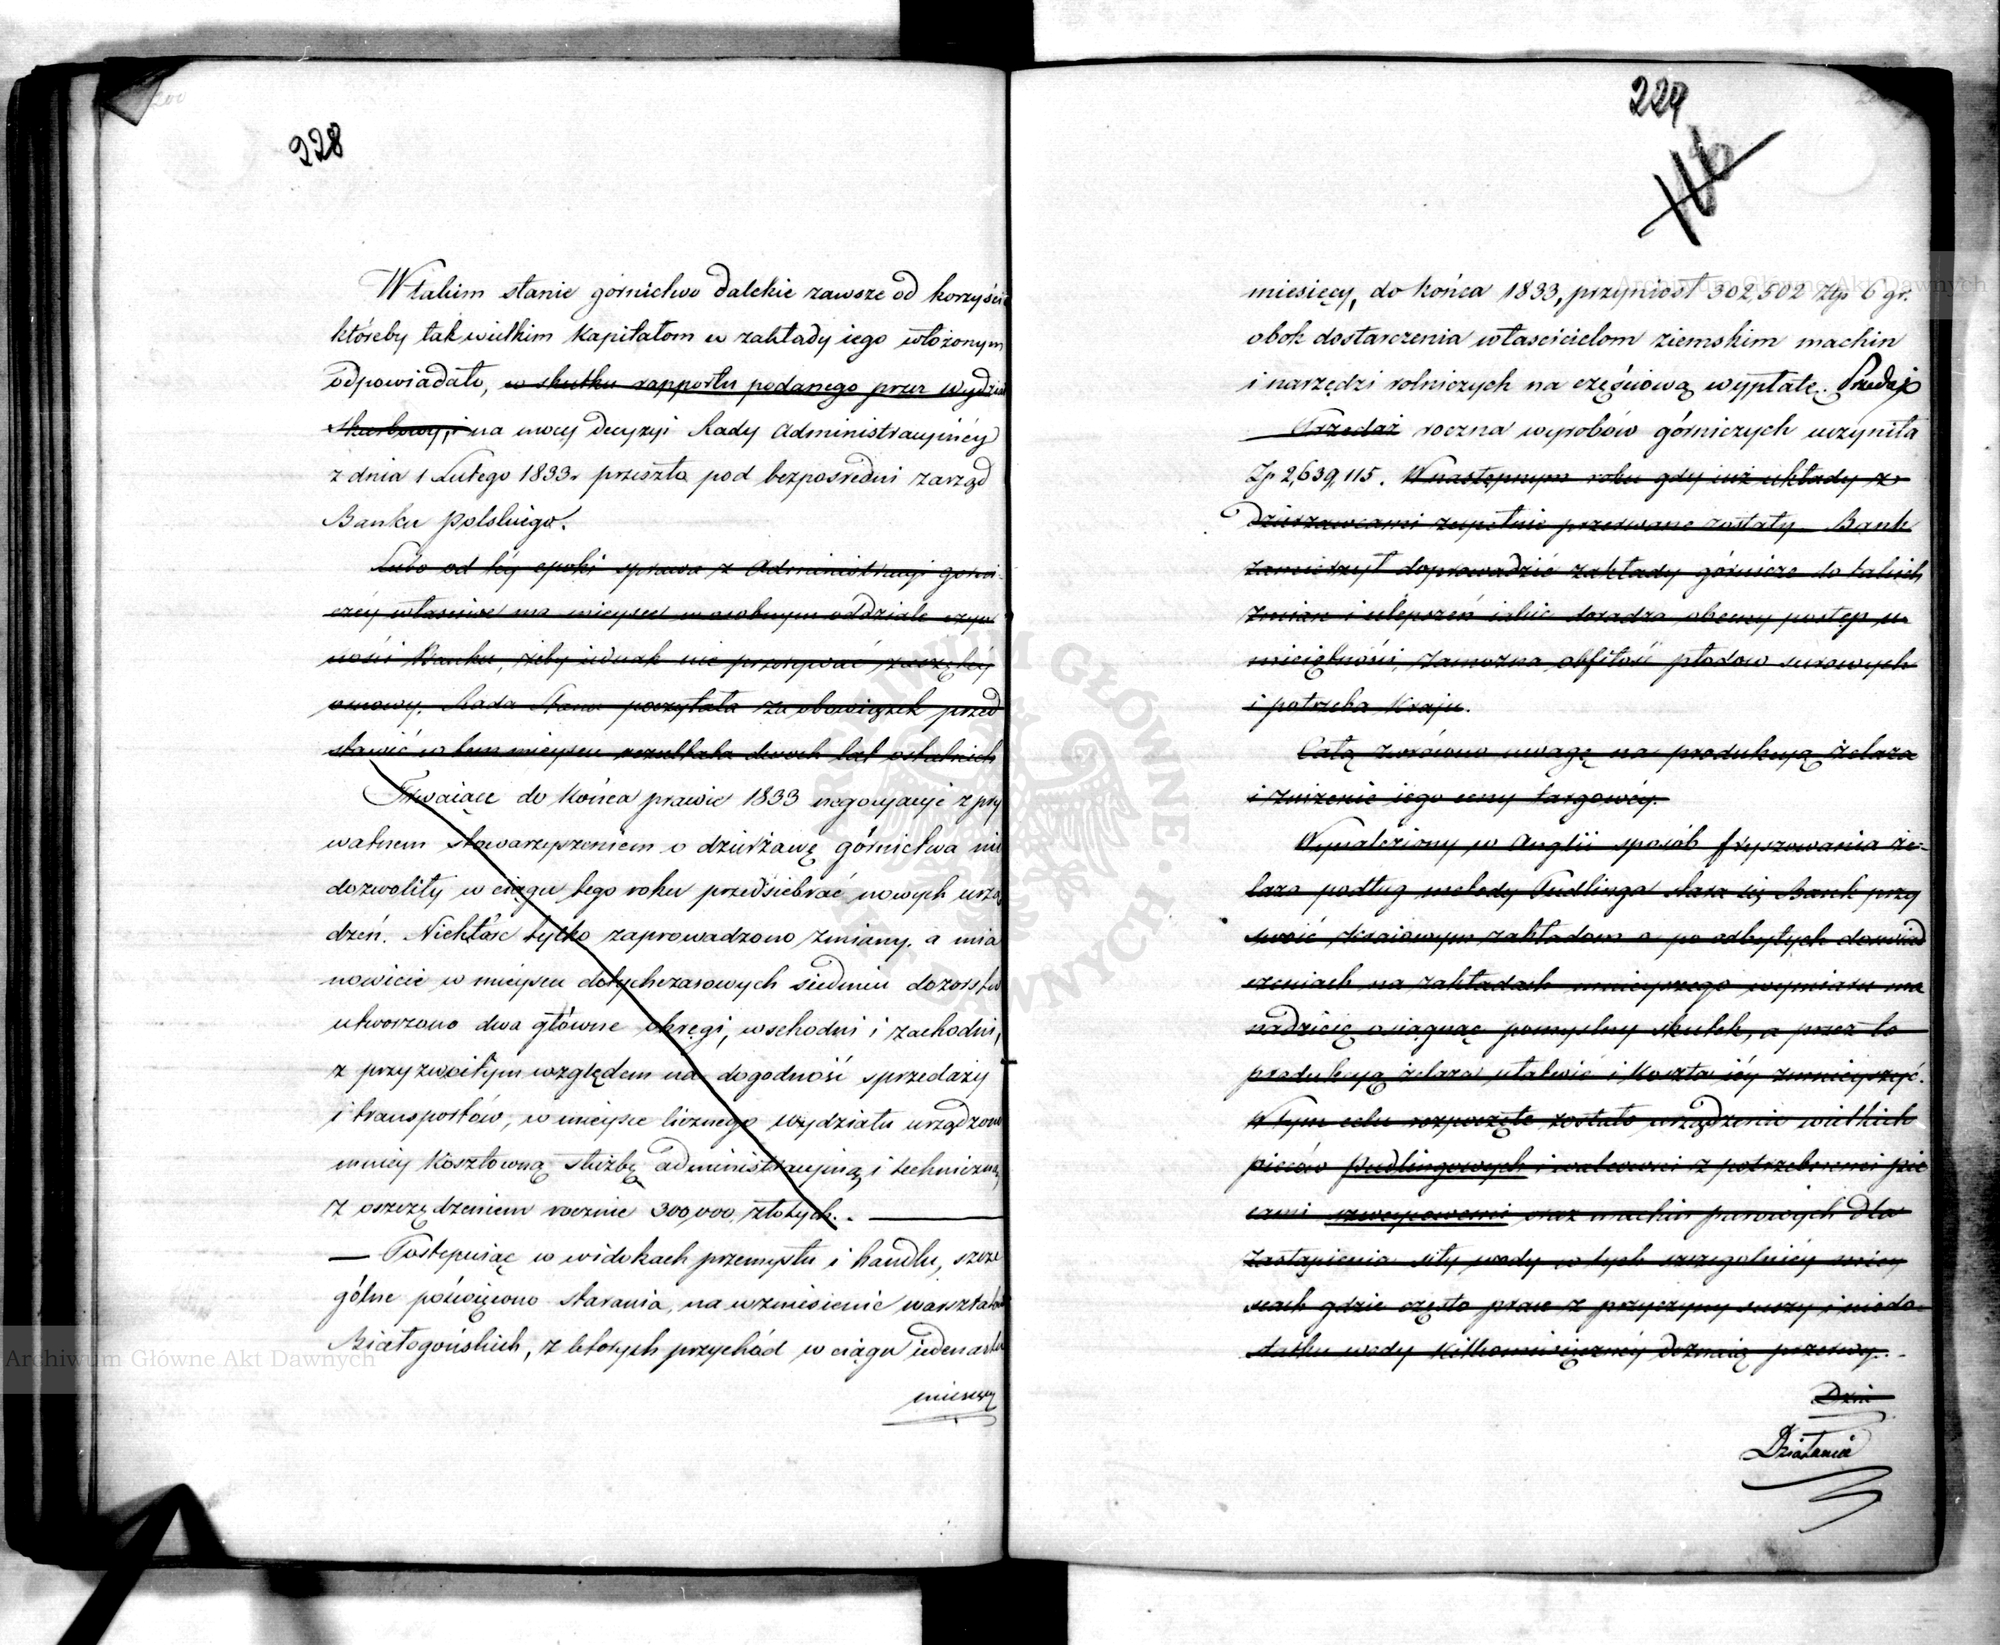 228
W takim stanie górnictwo dalekie zawsze od korzyści
któreby tak wielkim kapitałom w zakłady iego włożonym
odpowiadało, w skutku rapportu podanego przez Wydział
Skarbowy, i na mocy decyzyi Rady Administracyinéy
z dnia 1 Lutego 1833 r przeszło pod bezpośredni zarząd
Banku Polskiego.
Lubo od téy epoki sprawa z Administracyi górni-
czéy właściwe ma mieysce w osobnym oddziale czyn
ności Banku, żeby iednak nie przerywać zaczętéy
omowy, Rada Stanu poczytała za obowiązek przed
stawić w tem mieyscu rezultata dwoch lat ostatnich
Trwaiące do końca prawie 1833 negocyacye z pry
watnem stowarzyszeniem o dzierżawę górnictwa nie
dozwoliły w ciągu tego roku przedsiebrać nowych urzą
dzeń. Niektóre tylko zaprowadzono zmiany, a mia
nowicie w mieyscu dotychczasowych siedmiu dozorstw
utworzono dwa główne okręgi, wschodni i zachodni,
z przyzwoitym względem na dogodność sprzedaży
i transportów, w mieysce licznego wydziału urządzono
mniey kosztowną służbę administracyiną i techniczną
z oszczędzeniem rocznie 300,000 złotych.
— Postępuiąc w widokach przemysłu i handlu, szcze
gólne poświęcono starania, na wzniesienie warsztatów
Białogońskich, z których przychód w ciągu iedenastu
miesięcy
229
116
miesięcy, do końca 1833, przyniosł 302,502 Złp 6 gr.
obok dostarczenia właścicielom ziemskim machin
i narzędzi rolniczych na częściową wypłatę. Przedaż
Przedaż roczna wyrobów górniczych uczyniła
Zp 2,639,115. W następnym roku gdy iuż układy z
dzierżawcami zupełnie przerwane zostały Bank
zamierzył doprowadzić zakłady górnicze do takich
zmian i ulepszeń iakie doradza obecny postęp u
mieiętności, zamożna obfitość płodow surowych
i potrzeba Kraju.
Całą zwrócono uwagę na produkcyą żelaza
i zniżenie iego ceny targowéy.
Wynaleziony w Anglii sposób fryszowania że-
laza podług metody Pudlinga stara się Bank przy
swoić kraiowym zakładom a po odbytych doświad
czeniach na zakładach mnieyszego wymiaru ma
nadzieię osiągnąć pomyslny skutek, a przez to
produkcyą żelaza ułatwić i koszta iéy zmnieyszyć.
W tym celu rozpoczęte zostało urządzenie wielkich
pieców Pudlingowych i walcowni z potrzebnemi pie
cami szweycowemi oraz machin parowych dla
zastąpienia siły wody w tych szczególniéy miey
scach gdzie często prace z przyczyny suszy i niedo-
statku wody kilkomiesięcznéy doznaią przerwy.
Dzia
Działania
Archiwum Główne Akt Dawnych
Archiwum Główne Akt Dawnych
ARCHIWUM GŁÓWNE AKT DAWNYCH